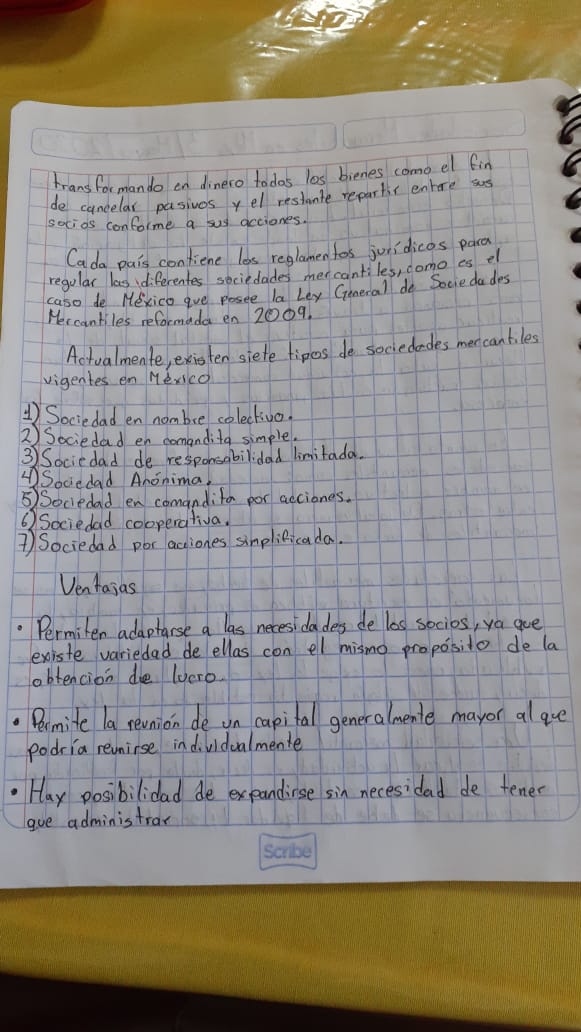 transformando en dinero todos los bienes como el fin
de cancelar pasivos y el restante repartir entre sus
socios conforme a sus acciones.
Cada país contiene los reglamentos jurídicos para
regular las diferentes sociedades mercantiles, como es el
caso de México que posee la Ley General de Sociedades
Mercantiles reformada en 2009.
Actualmente, existen siete tipos de sociedades mercantiles
vigentes en México
1) Sociedad en nombre colectivo.
2) Sociedad en comandita simple.
3) Sociedad de responsabilidad limitada.
4) Sociedad Anónima.
5) Sociedad en comandita por acciones.
6) Sociedad cooperativa.
7) Sociedad por acciones simplificada.
Ventajas
• Permiten adaptarse a las necesidades de los socios, ya que
existe variedad de ellas con el mismo propósito de la
obtención de lucro.
• Permite la reunión de un capital generalmente mayor al que
podría reunirse individualmente
• Hay posibilidad de expandirse sin necesidad de tener
que administrar
Scribe